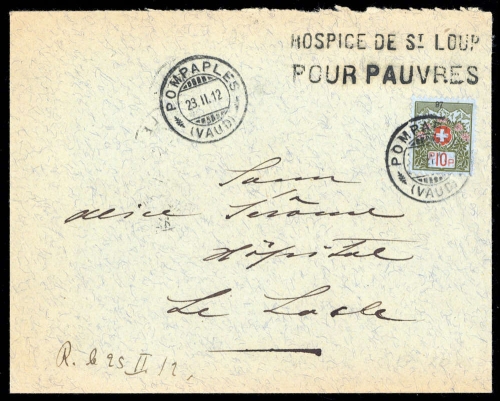 HOSPICE DE ST LOUP
POUR PAUVRES
POMPAPLES
23.II.12
(VAUD)
POMPAPLES
(VAUD)
10
Sœur
Alice Jérôme
Hôpital
Le Locle
R. le 25 II 12,